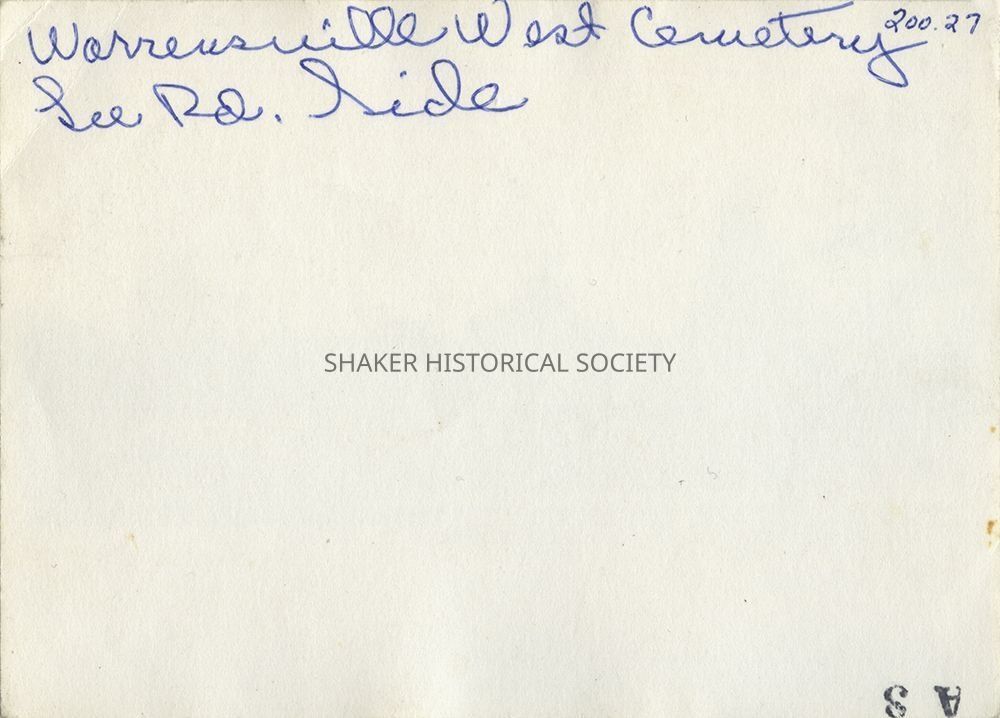 Warrensville West Cemetery 200.27
Lee Rd. Side
SHAKER HISTORICAL SOCIETY
A S